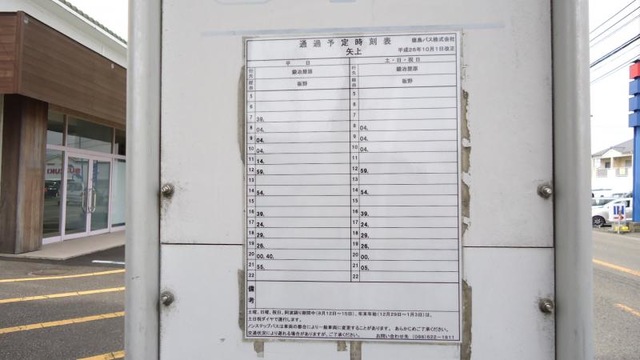 通過予定時刻表
徳島バス株式会社
矢上
平成26年10月1日改正
平日 土・日・祝日
鍛冶屋原 鍛冶屋原
板野 板野
5 5
6 6
7 38. 7
8 04. 8 04.
9 04. 9 04.
10 04. 10 04.
11 14. 11
12 59. 12 59.
13 13
14 54. 14 54.
15 15
16 39. 16 39.
17 24. 17 24.
18 29. 18 29.
19 26. 19 26.
20 00. 40. 20 00.
21 55. 21 05.
22 22
備考
土曜、日曜、祝日、阿波踊り期間中(8月12日～15日)、年末年始(12月29日～1月3日)は、
土日祝ダイヤで運行します。
ノンステップバスは車両の都合により一般車両に変更することがあります。あらかじめご了承ください。
交通状況により遅れる場合がありますが、ご了承ください。 お問い合わせ先 (088)622-1811